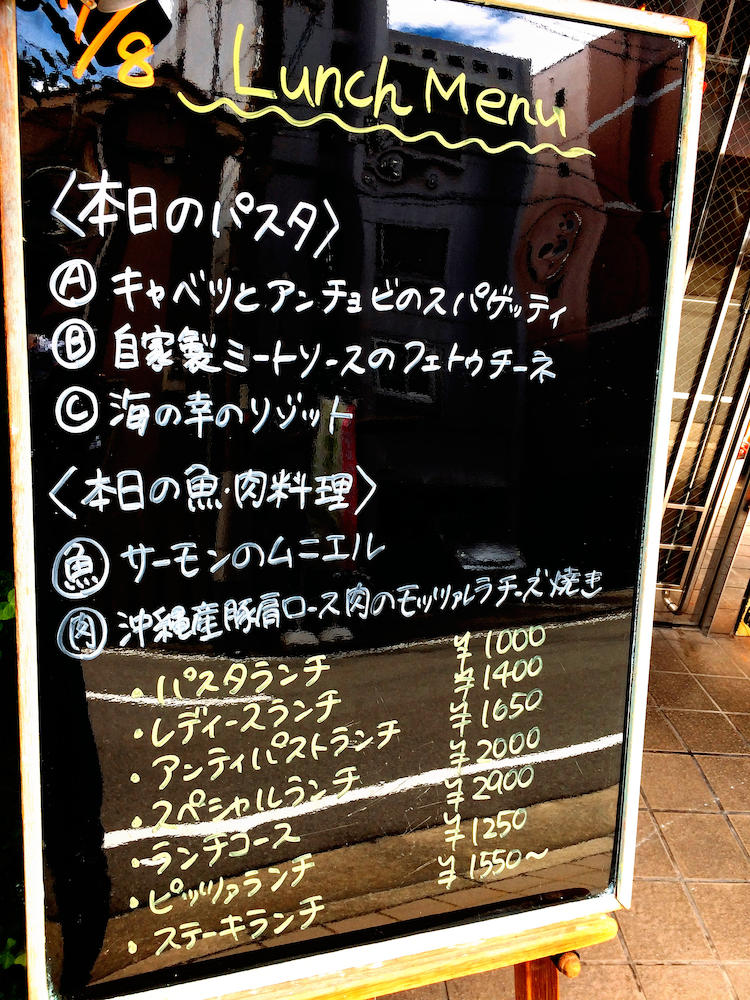 /8
Lunch Menu
〈本日のパスタ〉
Ⓐ キャベツとアンチョビのスパゲッティ
Ⓑ 自家製ミートソースのフェトゥチーネ
Ⓒ 海の幸のリゾット
〈本日の魚・肉料理〉
魚 サーモンのムニエル
肉 沖縄産豚肩ロース肉のモッツァレラチーズ焼き
・パスタランチ ¥1000
・レディースランチ ¥1400
・アンティパストランチ ¥1650
・スペシャルランチ ¥2000
・ランチコース ¥2900
・ピッツァランチ ¥1250
・ステーキランチ ¥1550~